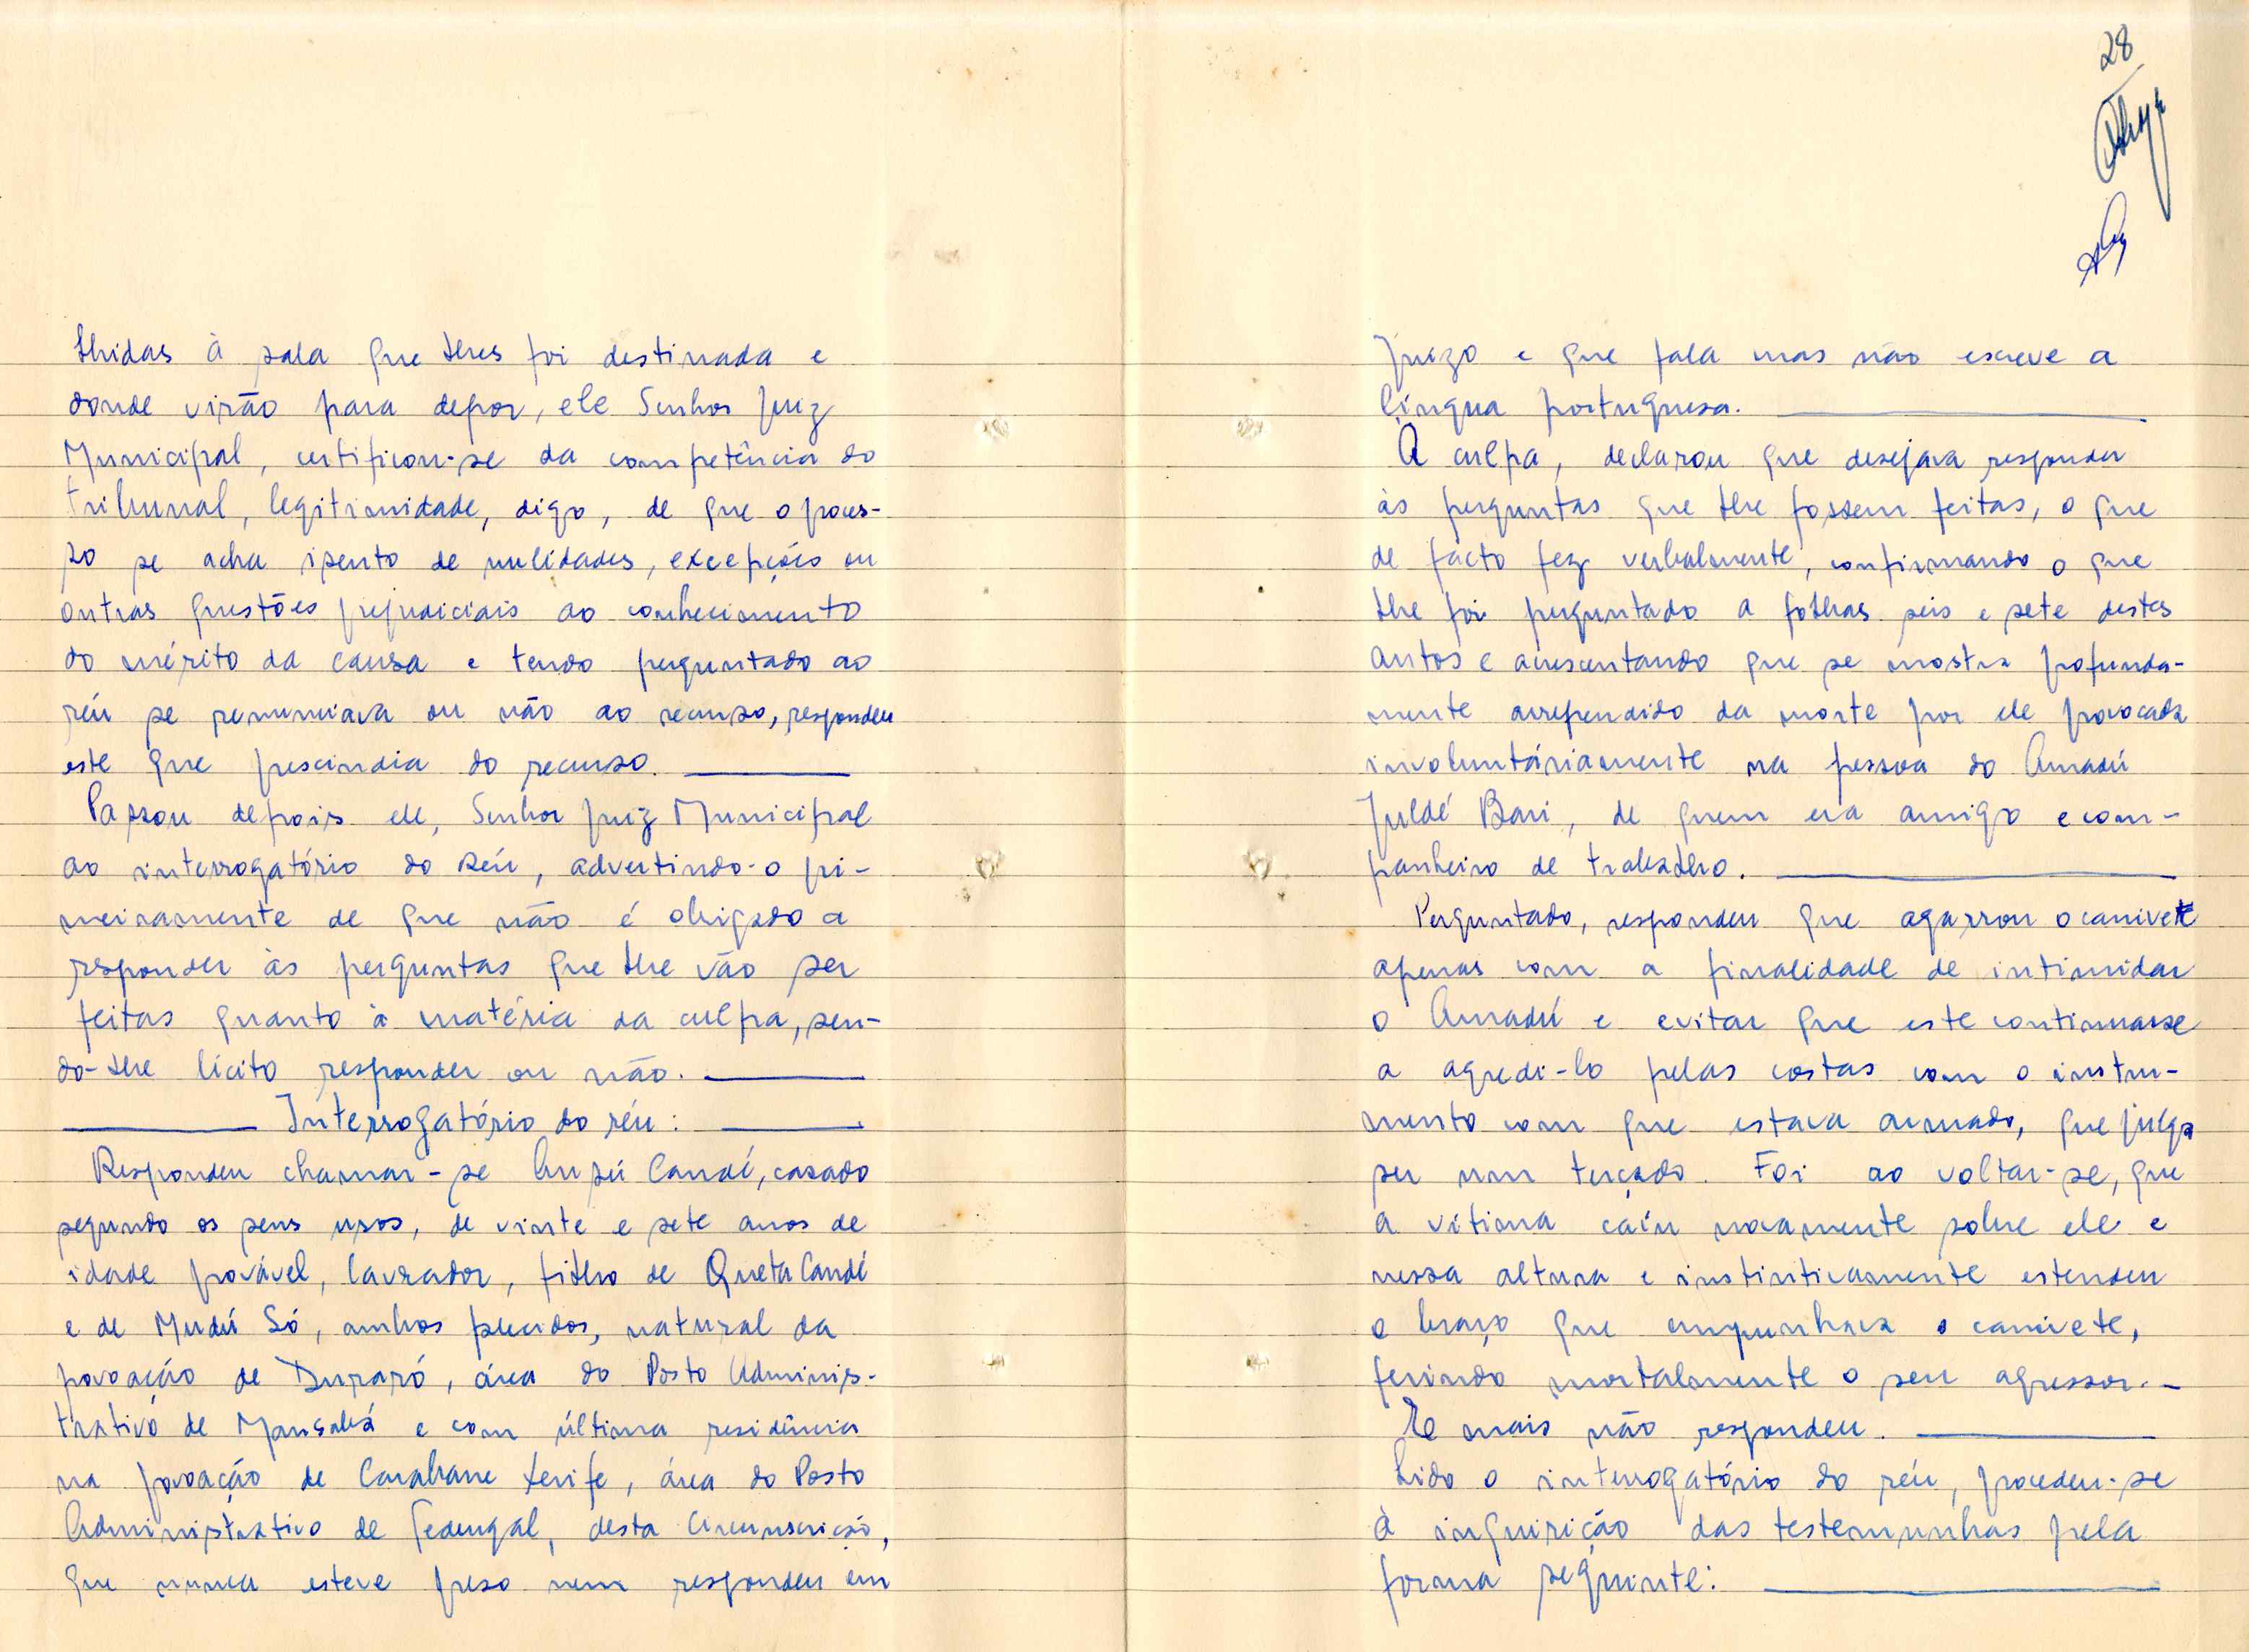 lhidas à sala que lhes foi destinada e
donde virão para depor, ele Senhor Juiz
Municipal, certificou-se da competência do
tribunal, legitimidade, digo, de que o proces-
so se acha isento de nulidades, excepções ou
outras questões prejudiciais ao conhecimento
do mérito da causa e tendo perguntado ao
réu se renunciava ou não ao recurso, respondeu
este que prescindia do recurso.
Passou depois ele, Senhor Juiz Municipal
ao interrogatório do réu, advertindo-o pri-
meiramente de que não é obrigado a
responder às perguntas que lhe vão ser
feitas quanto à matéria da culpa, sen-
do-lhe lícito responder ou não.
Interrogatório do réu:
Respondeu chamar-se Ansú Candé, casado
segundo os seus usos, de vinte e sete anos de
idade provável, lavrador, filho de Queta Candé
e de Mudú Só, ambos falecidos, natural da
povoação de, área do Posto Adminis-
trativo de Mansabá e com última residência
na povoação de Carabane Xerife, área do Posto
Administrativo de, desta Circunscrição,
que nunca esteve preso nem respondeu em
28
Juízo e que fala mas não escreve a
língua portuguesa.
À culpa, declarou que desejava responder
às perguntas que lhe fossem feitas, o que
de facto fez verbalmente, confirmando o que
lhe foi perguntado a folhas seis e sete destes
autos e acrescentando que se mostra profunda-
mente arrependido da morte por ele provocada
involuntáriamente na pessoa do Amadú
Juldé Bari, de quem era amigo e com-
panheiro de trabalho.
Perguntado, respondeu que agarrou o canivete
apenas com a finalidade de intimidar
o Amadú e evitar que este continuasse
a agredi-lo pelas costas com o instru-
mento com que estava armado, que julga
ser um terçado. Foi ao voltar-se, que
a vítima caiu novamente sobre ele e
nessa altura e instintivamente estendeu
o braço que empunhava o canivete,
ferindo mortalmente o seu agressor.-
E mais não respondeu.
Lido o interrogatório do réu, procedeu-se
à inquirição das testemunhas pela
forma seguinte: